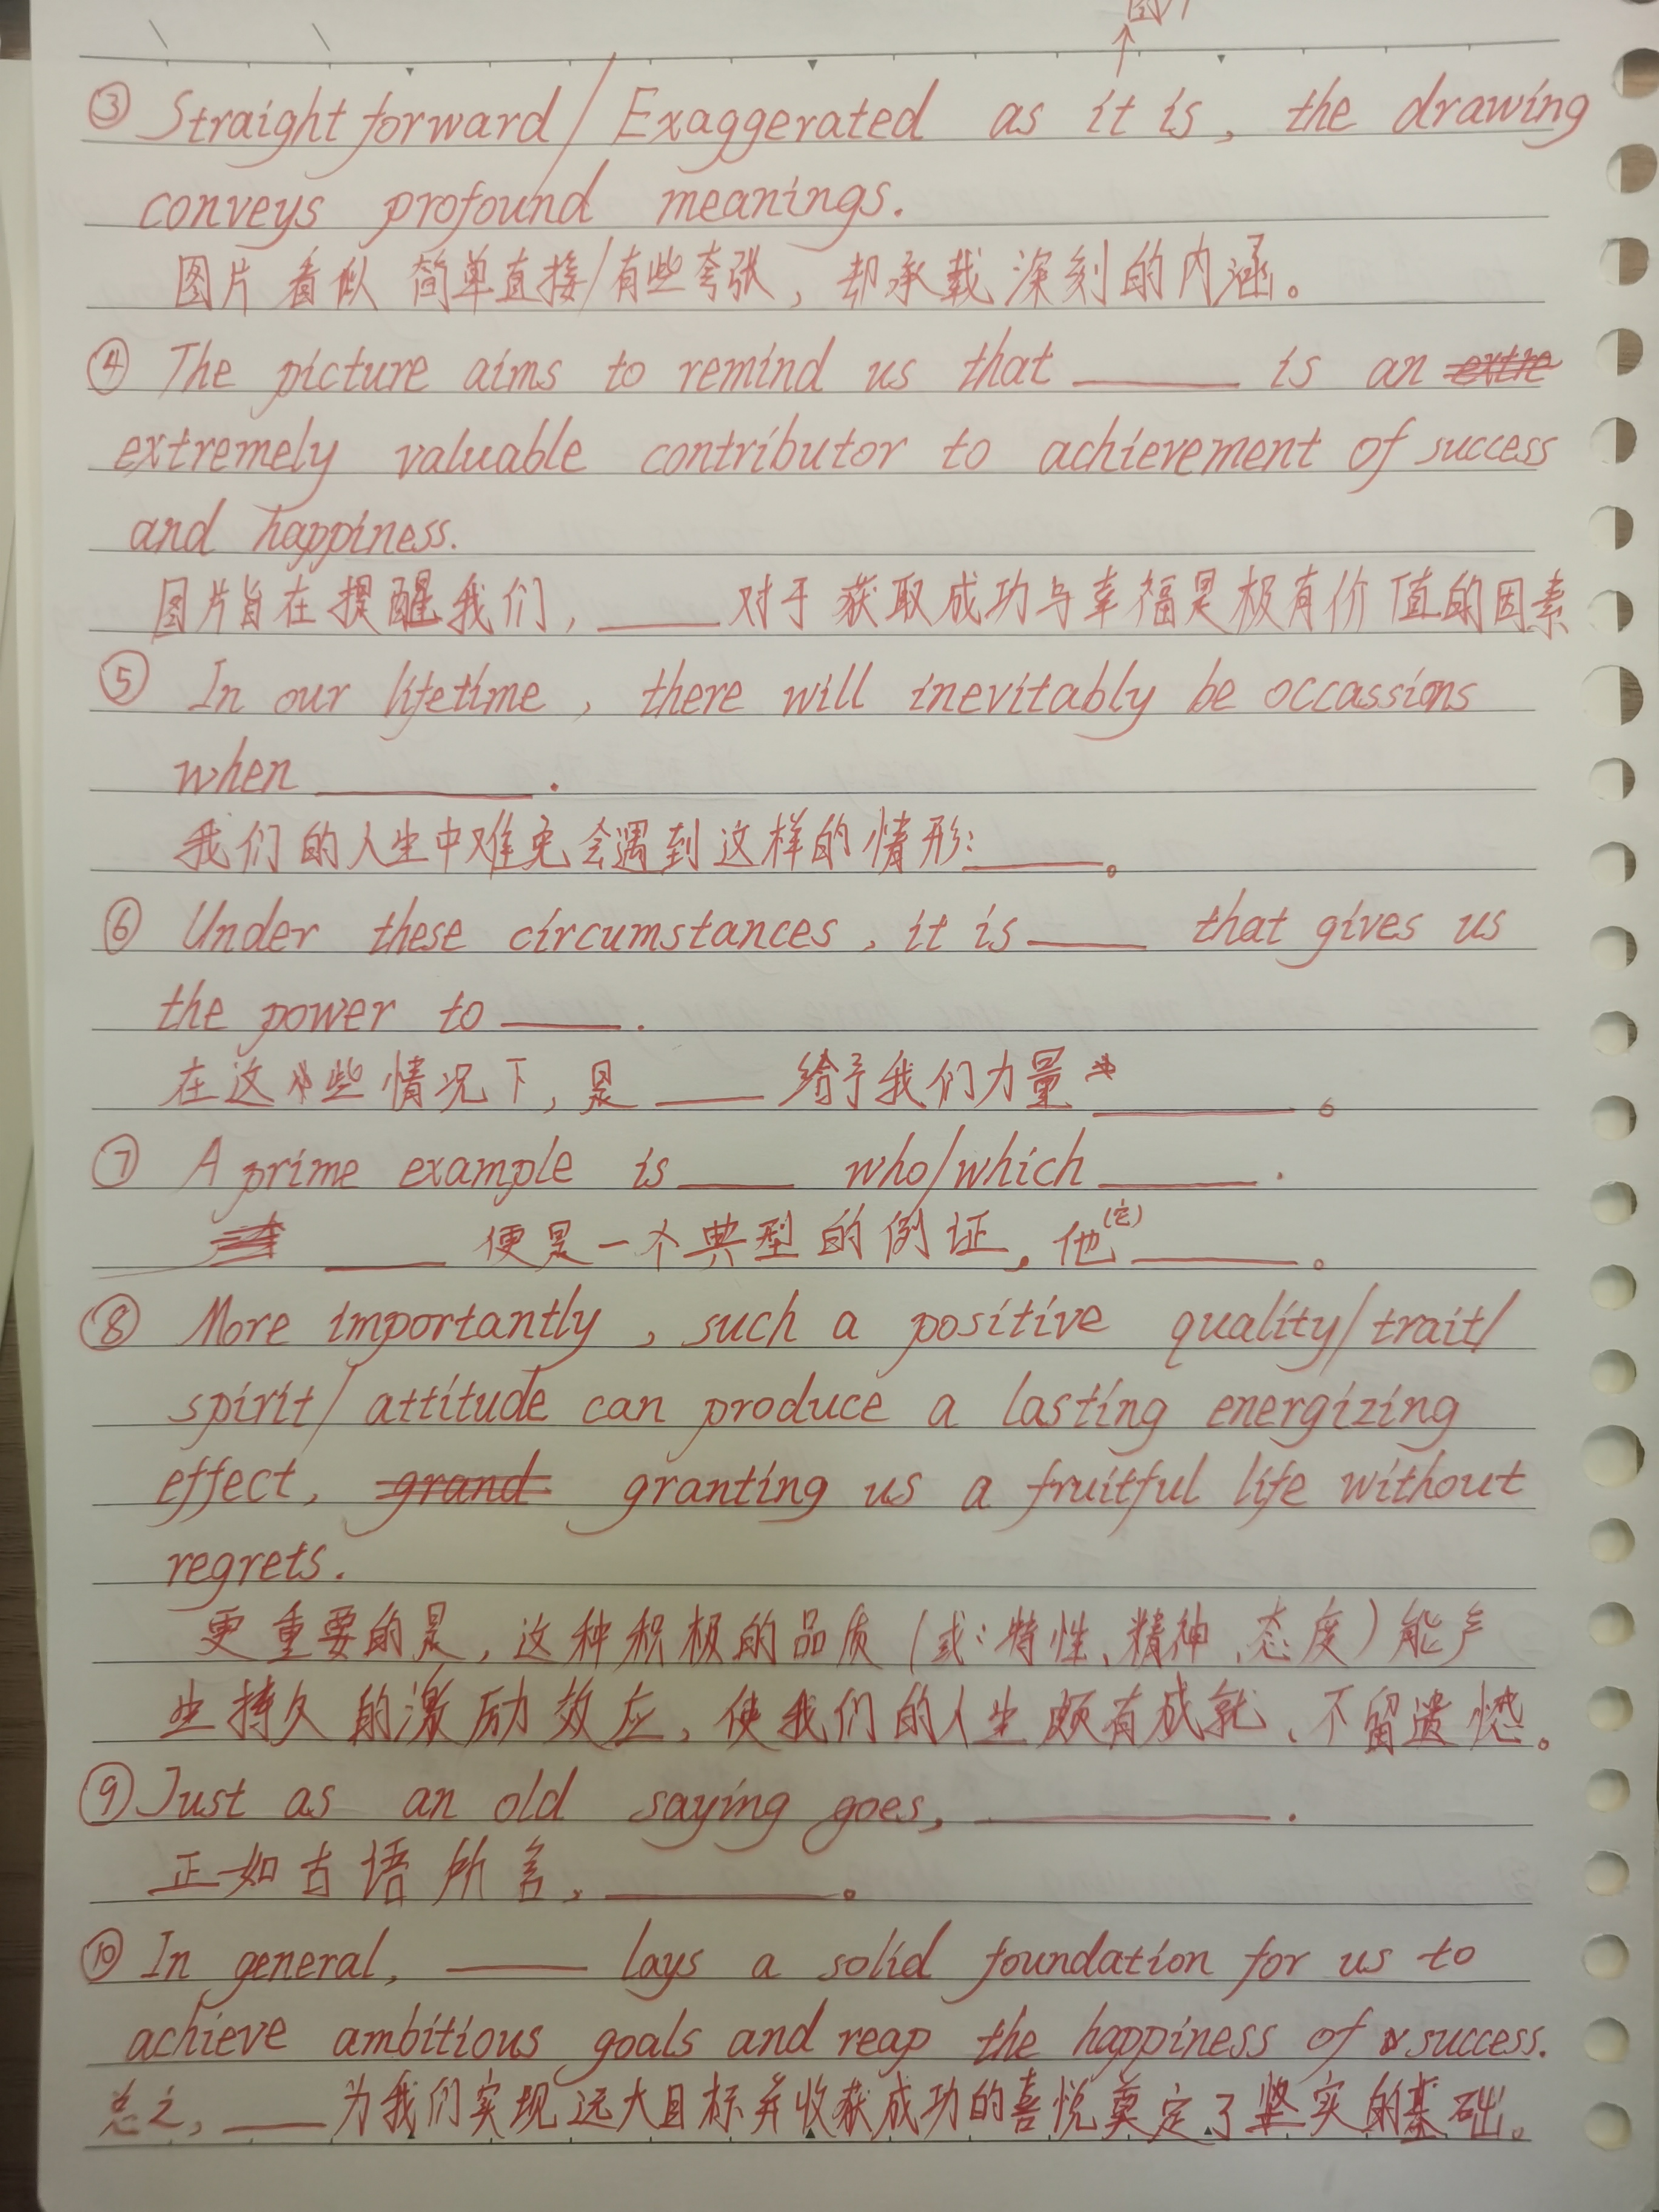 ③ Straightforward/Exaggerated as it is, the drawing
conveys profound meanings.
图片看似简单直接/有些夸张，却承载深刻的内涵。
④ The picture aims to remind us that ______ is an
extremely valuable contributor to achievement of success
and happiness.
图片旨在提醒我们，______对于获取成功与幸福是极有价值的因素
⑤ In our lifetime, there will inevitably be occassions
when ______.
我们的人生中难免会遇到这样的情形：______。
⑥ Under these circumstances, it is ______ that gives us
the power to ______.
在这些情况下，是______给予我们力量______。
⑦ A prime example is ______ who/which ______.
______便是一个典型的例证，他(它)______。
⑧ More importantly, such a positive quality/trait/
spirit/attitude can produce a lasting energizing
effect, granting us a fruitful life without
regrets.
更重要的是，这种积极的品质（或：特性、精神、态度）能产
生持久的激励效应，使我们的人生颇有成就、不留遗憾。
⑨ Just as an old saying goes, ______.
正如古语所言，______。
⑩ In general, ______ lays a solid foundation for us to
achieve ambitious goals and reap the happiness of success.
总之，______为我们实现远大目标并收获成功的喜悦奠定了坚实的基础。